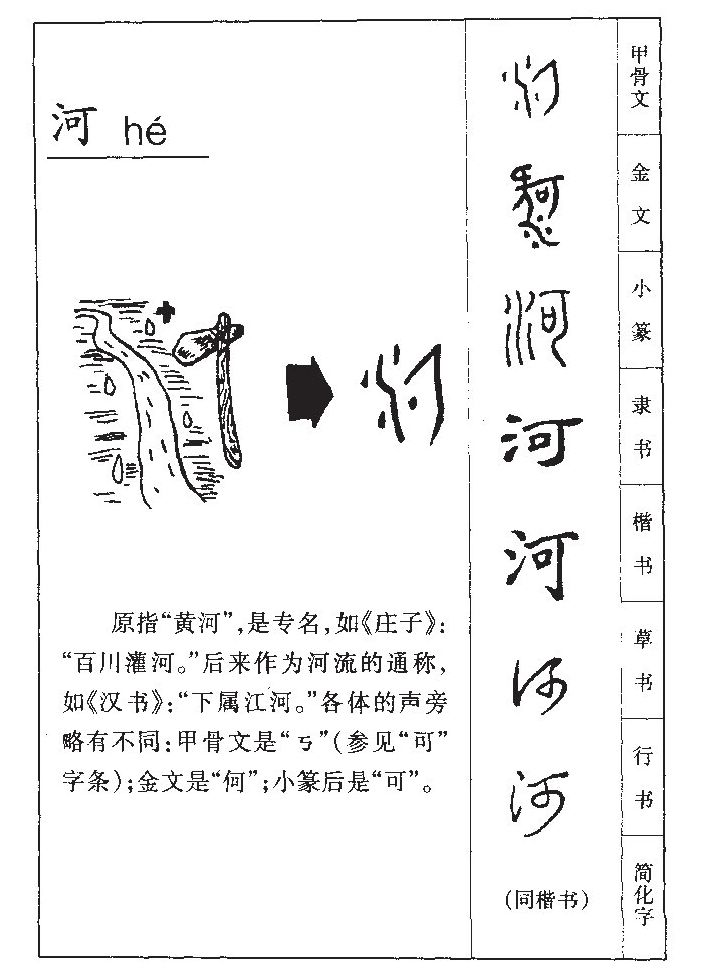 河 hé
原指“黄河”,是专名,如《庄子》:
“百川灌河。”后来作为河流的通称,
如《汉书》:“下属江河。”各体的声旁
略有不同:甲骨文是“ㄎ”(参见“可”
字条);金文是“何”;小篆后是“可”。
甲骨文
金文
小篆
河 隶书
河 楷书
河 草书
河 行书
(同楷书) 简化字